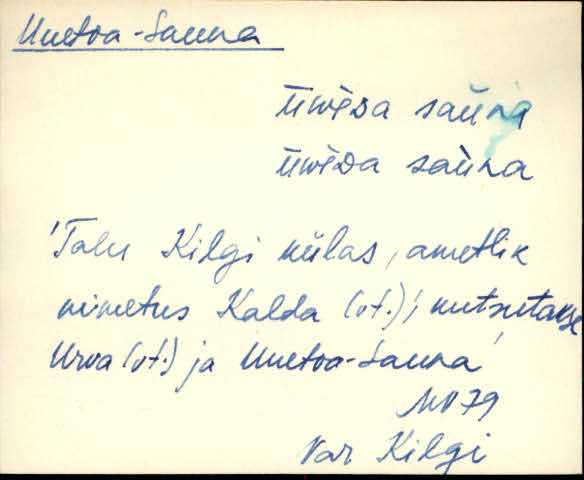 Uuetoa-Sauna
ũwèDa saùna
ũwèDa saùna
'Talu Kilgi külas, ametlik
nimetus Kalda (vt.); kutsutakse
Urva (vt.) ja Uuetoa-Sauna'
MV 79
Var Kilgi